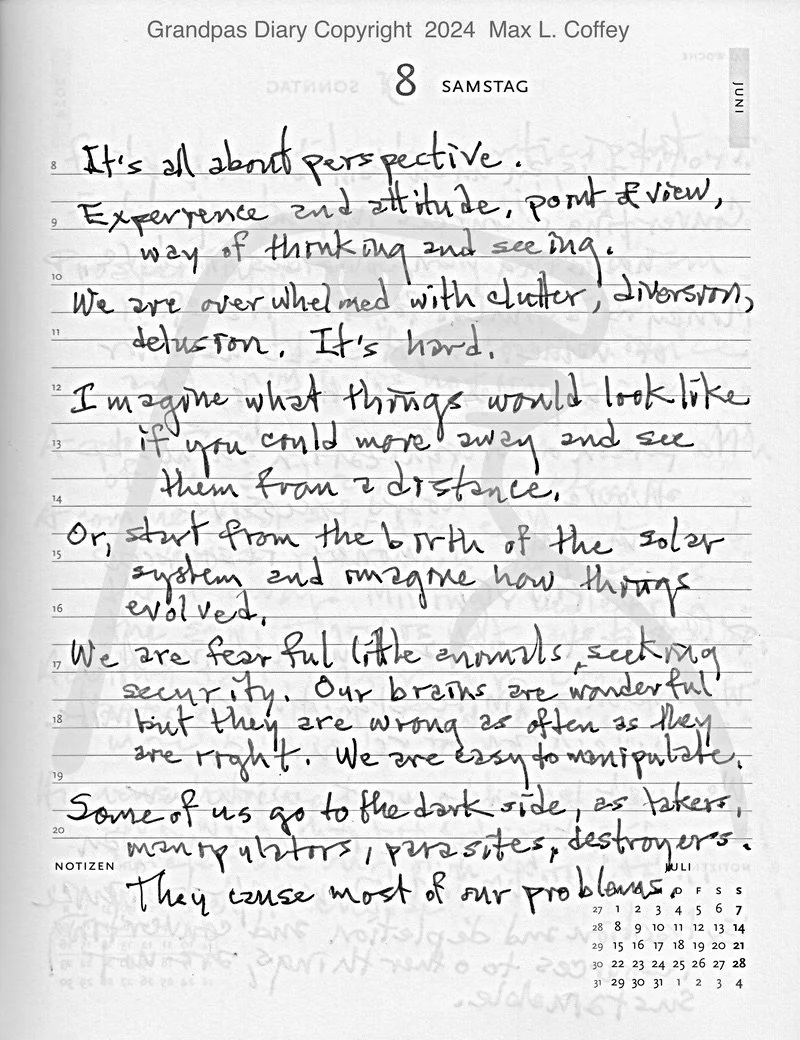 Grandpas Diary Copyright 2024 Max L. Coffey
8 SAMSTAG
JUNI
8 It's all about perspective.
9 Experience and attitude, point of view,
way of thinking and seeing.
10 We are overwhelmed with clutter, diversion,
11 delusion. It's hard.
12 Imagine what things would look like
13 if you could move away and see
14 them from a distance.
Or, start from the birth of the solar
15 system and imagine how things
16 evolved.
17 We are fearful little animals, seeking
security. Our brains are wonderful
18 but they are wrong as often as they
are right. We are easy to manipulate.
19
Some of us go to the dark side, as takers,
20 manipulators, parasites, destroyers.
NOTIZEN
They cause most of our problems.
JULI
D F S S
27 1 2 3 4 5 6 7
28 8 9 10 11 12 13 14
29 15 16 17 18 19 20 21
30 22 23 24 25 26 27 28
31 29 30 31 1 2 3 4